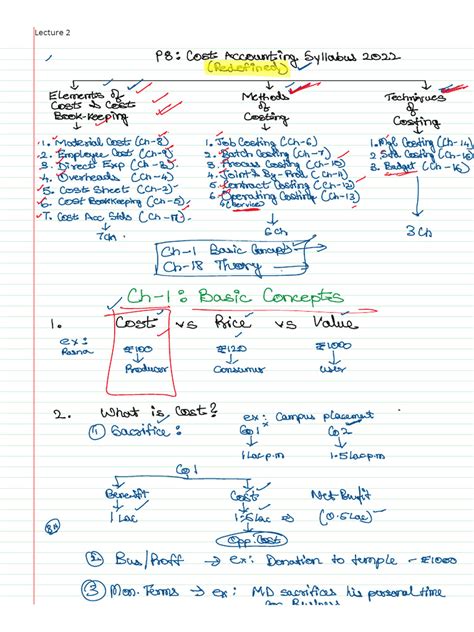 Lecture 2
P8: Cost Accounting Syllabus 2022
(Redefined)
Elements of Costs & Cost Book-keeping
Methods of Costing
Techniques of Costing
1. Material Cost (Ch-8)
2. Employee Cost (Ch-9)
3. Direct Exp (Ch-)
4. Overheads (Ch-4)
5. Cost Sheet (Ch-)
6. Cost BookKeeping (Ch-5)
7. Cost Acc Stds (Ch-17)
7Ch
1. Job Costing (Ch-6)
2. Batch Costing (Ch-7)
3. Process Costing (Ch-)
4. Joint & By-Prod. (Ch-11)
5. Contract Costing (Ch-12)
6. Operating Costing (Ch-13)
(Service)
6Ch
1. Costing (Ch-14)
2. Std. Costing (Ch-)
3. Budget (Ch-16)
3Ch
Ch-1 Basic Concepts
Ch-18 Theory
Ch-1: Basic Concepts
1. Cost vs Price vs Value
ex: ₹100 ₹120 ₹1000
Producer Consumer User
2. What is Cost?
ex: Campus placement
① Sacrifice: Co1 Co2
1 Lac p.m 1.5 Lac p.m
Co1
Benefit Cost Net Benefit
1 Lac 1.5 Lac (0.5 Lac)
Opp. Cost
② Bus/Proff → ex: Donation to temple - ₹1000
③ Mon. Terms → ex: MD sacrifices his personal time
for Business